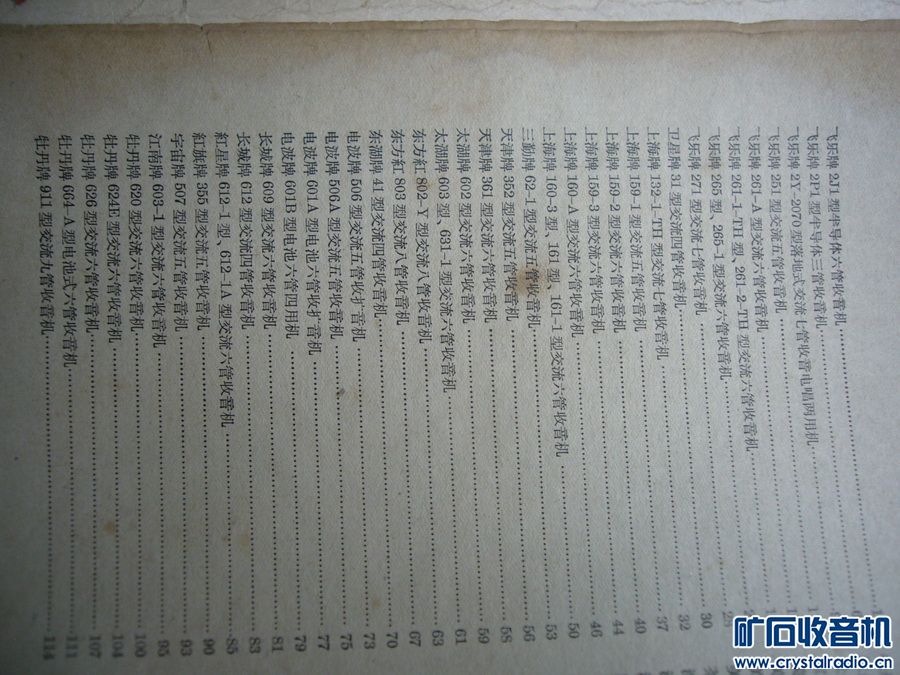 飞乐牌 2J1 型半导体六管收音机
飞乐牌 2P1 型半导体三管收音机
飞乐牌 2Y-2070 型落地式交流七管收音电唱两用机
飞乐牌 251 型交流五管收音机
飞乐牌 261-A 型交流六管收音机
飞乐牌 261-1-TH 型、261-2-TH 型交流六管收音机
飞乐牌 265 型、265-1 型交流六管收音机
飞乐牌 271 型交流七管收音机 30
卫星牌 31 型交流四管收音机 32
上海牌 132-1-TH 型交流七管收音机 37
上海牌 159-1 型交流五管收音机 40
上海牌 159-2 型交流六管收音机 44
上海牌 159-3 型交流六管收音机 46
上海牌 160-A 型交流六管收音机 50
上海牌 160-3 型、161 型、161-1 型交流六管收音机 53
三勤牌 62-1 型交流五管收音机 56
天津牌 353 型交流五管收音机 58
天津牌 361 型交流六管收音机 59
太湖牌 602 型交流六管收音机 61
太湖牌 603 型、631-1 型交流六管收音机 63
东方紅 802-Y 型交流八管收音机 67
东方紅 803 型交流八管收音机 70
东湖牌 41 型交流四管收音机 73
电波牌 506 型交流五管收扩音机 75
电波牌 506A 型交流五管收音机
电波牌 601A 型电池六管收扩音机 77
电波牌 601B 型电池六管四用机 79
长城牌 609 型交流六管收音机 81
长城牌 612 型交流四管收音机 83
紅星牌 612-1 型、612-1A 型交流六管收音机 85
紅旗牌 355 型交流五管收音机 90
宇宙牌 507 型交流五管收音机 93
江南牌 603-1 型交流六管收音机 95
牡丹牌 620 型交流六管收音机 100
牡丹牌 624E 型交流六管收音机 104
牡丹牌 626 型交流六管收音机 107
牡丹牌 664-A 型电池式六管收音机 111
牡丹牌 911 型交流九管收音机 114
矿石收音机
www.crystalradio.cn